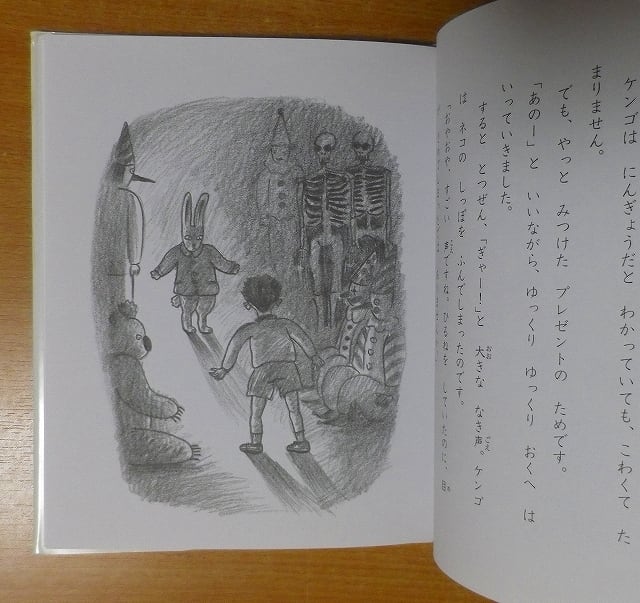 ケンゴは にんぎょうだと わかっていても、こわくて た
まりません。
でも、やっと みつけた プレゼントの ためです。
「あのー」と いいながら、ゆっくり ゆっくり おくへ は
いっていきました。
すると とつぜん、「ぎゃー！」と 大きな なき声。ケンゴ
は ネコの しっぽを ふんでしまったのです。
「おやおや、すごい 声ですね。ひるねを していたのに、目